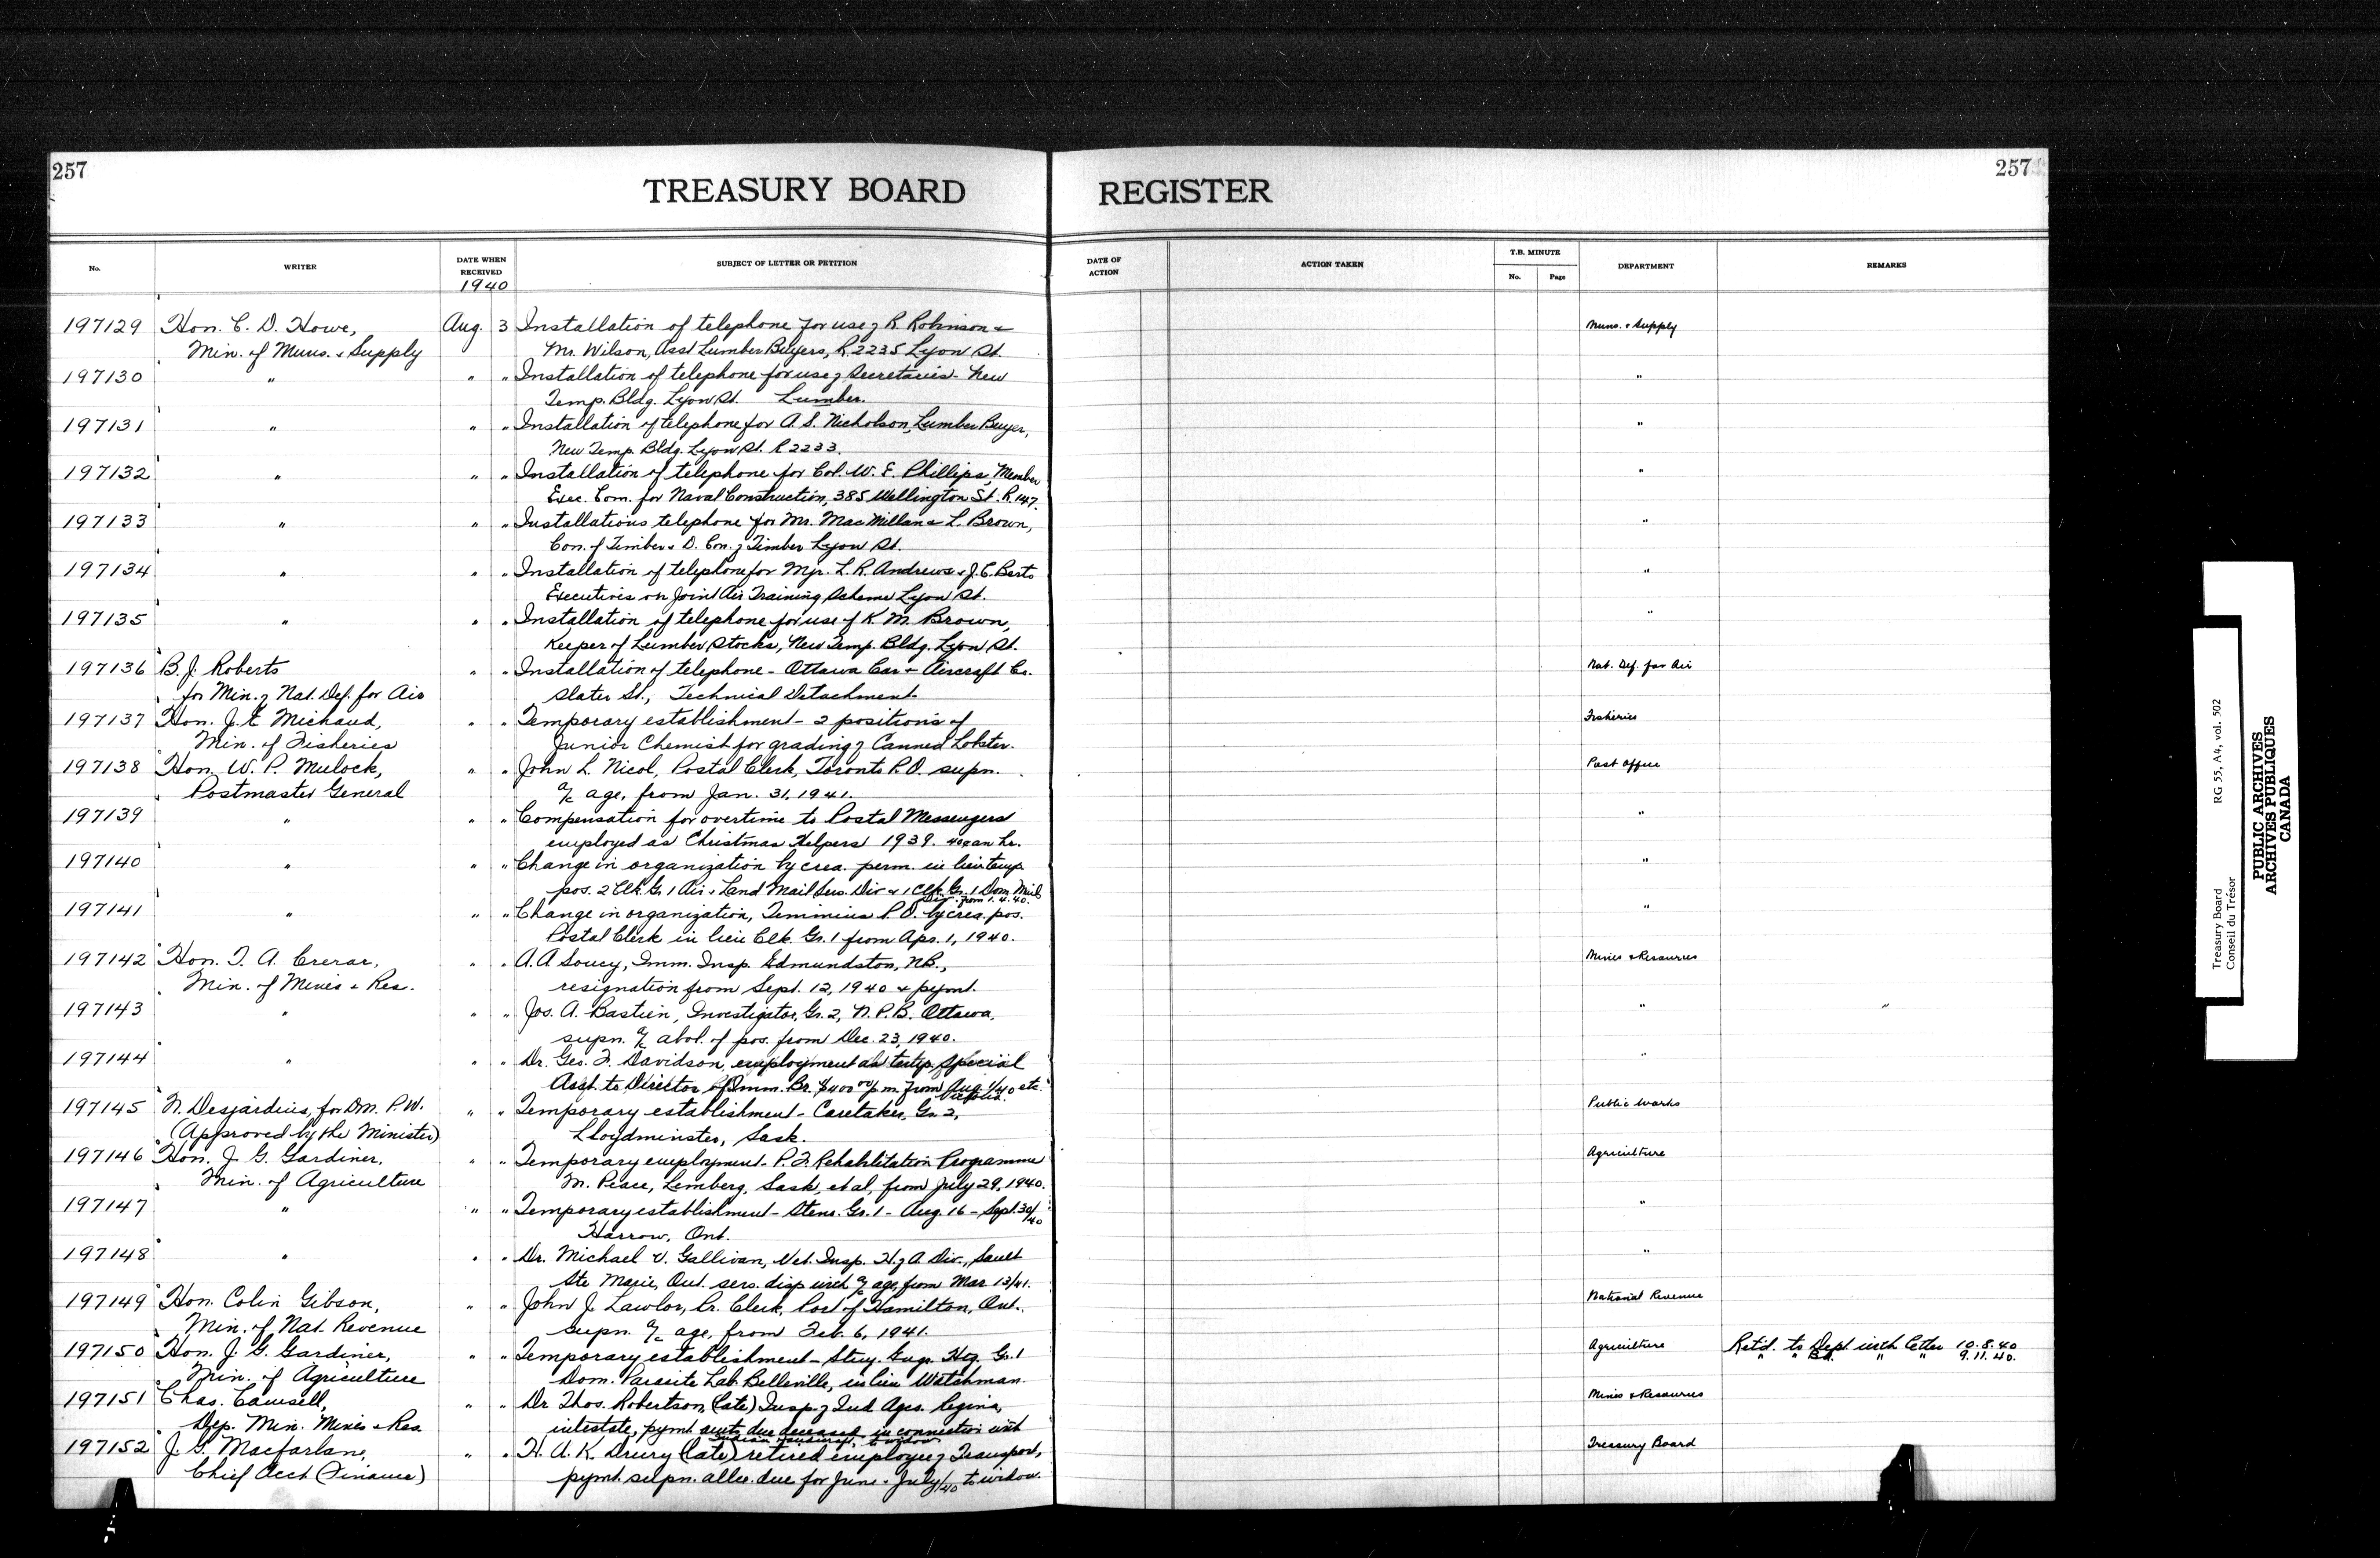 257
257
TREASURY BOARD REGISTER
No.
WRITER
DATE WHEN RECEIVED
1940
SUBJECT OF LETTER OR PETITION
DATE OF ACTION
ACTION TAKEN
T.B. MINUTE
No.
Page
DEPARTMENT
REMARKS
197129 Hon. C. D. Howe, Aug. 3 Installation of telephone for use of R. Robinson & Muns. & Supply
Min. of Muns. & Supply Mr. Wilson, Asst Lumber Buyers, R.2235 Lyon St.
197130 " " " Installation of telephone for use of Secretaries - New "
Temp. Bldg. Lyon St. Lumber.
197131 " " " Installation of telephone for A. S. Nicholson, Lumber Buyer, "
New Temp. Bldg. Lyon St. R 2233.
197132 " " " Installation of telephone for Col. W. E. Phillips, Member "
Exec. Com. for Naval Construction, 385 Wellington St. R. 147.
197133 " " " Installations telephone for Mr. MacMillan & L. Brown, "
Con. of Timber & D. Con. of Timber Lyon St.
197134 " " " Installation of telephone for Mjr. L. R. Andrews & J. C. Berto "
Executives on Joint Air Training Scheme Lyon St.
197135 " " " Installation of telephone for use of K. M. Brown, "
Keeper of Lumber Stocks, New Temp. Bldg. Lyon St.
197136 B. J. Roberts " " Installation of telephone - Ottawa Car & Aircraft Co. Nat. Def. for Air
for Min. of Nat. Def. for Air Slater St., Technical Detachment
197137 Hon. J. E. Michaud, " " Temporary establishment - 2 positions of Fisheries
Min. of Fisheries Junior Chemist for grading of Canned Lobster.
197138 Hon. W. P. Mulock, " " John L. Nicol, Postal Clerk, Toronto P.O. supn. Post Office
Postmaster General a/c age, from Jan. 31, 1941.
197139 " " " Compensation for overtime to Postal Messengers "
employed as Christmas Helpers 1939. 40¢ an hr.
197140 " " " Change in organization by crea. perm. in lieu temp "
pos. 2 Clk. Gr 1 Air & Land Mail Serv. Div & 1 Clk. Gr. 1 Dom. Mail
Div. from 1.4.40.
197141 " " " Change in organization, Timmins P.O. by crea. pos. "
Postal Clerk in lieu Clk. Gr. 1 from Apr. 1, 1940.
197142 Hon. T. A. Crerar, " " A. A Soucy, Imm. Insp. Edmundston, N.B., Mines & Resources
Min. of Mines & Res. resignation from Sept. 12, 1940 & pymt.
197143 " " " Jos. A. Bastien, Investigator, Gr. 2, N. P. B. Ottawa, " "
supn. a/c abol. of pos. from Dec. 23, 1940.
197144 " " " Dr. Geo. F. Davidson, employment as temp. Special "
Asst. to Director of Imm. Br. $400.00 p.m. from Aug. 1/40 etc.
197145 N. Desjardins, for D.M. P.W. " " Temporary establishment - Caretaker, Gr. 2, Public Works
(Approved by the Minister) Lloydminster, Sask.
197146 Hon. J. G. Gardiner, " " Temporary employment - P. F. Rehabilitation Programme Agriculture
Min. of Agriculture M. Peace, Lemberg, Sask, et al, from July 29, 1940.
197147 " " " Temporary establishment - Steno. Gr. 1 - Aug. 16 - Sept. 30/40 "
Harrow, Ont.
197148 " " " Dr. Michael V. Gallivan, Vet. Insp. H. of A. Div., Sault "
Ste Marie, Ont. serv. disp with a/c age, from Mar. 13/41.
197149 Hon. Colin Gibson, " " John J. Lawlor, Pr. Clerk, Port of Hamilton, Ont. National Revenue
Min. of Nat. Revenue supn. a/c age, from Feb. 6, 1941.
197150 Hon. J. G. Gardiner, " " Temporary establishment - Sty. Engr. Htg. Gr. 1 Agriculture Ret'd. to Dept. with letter 10.8.40
Min. of Agriculture Dom. Parasite Lab. Belleville, in lieu Watchman. " " Bd. " " 9.11.40.
197151 Chas. Camsell, " " Dr Thos. Robertson (late) Insp. of Ind Ages. Regina, Mines & Resources
Dep. Min. Mines & Res. intestate, pymt amts due deceased in connection with
197152 J. G. Macfarlane, " " H. A. K. Drury (late) retired employee of Transport, Treasury Board
Chief Acct (Finance) pymt. supn. allce. due for June & July/40 to widow.
Treasury Board
Conseil du Trésor
RG 55, A4, vol. 502
PUBLIC ARCHIVES
ARCHIVES PUBLIQUES
CANADA